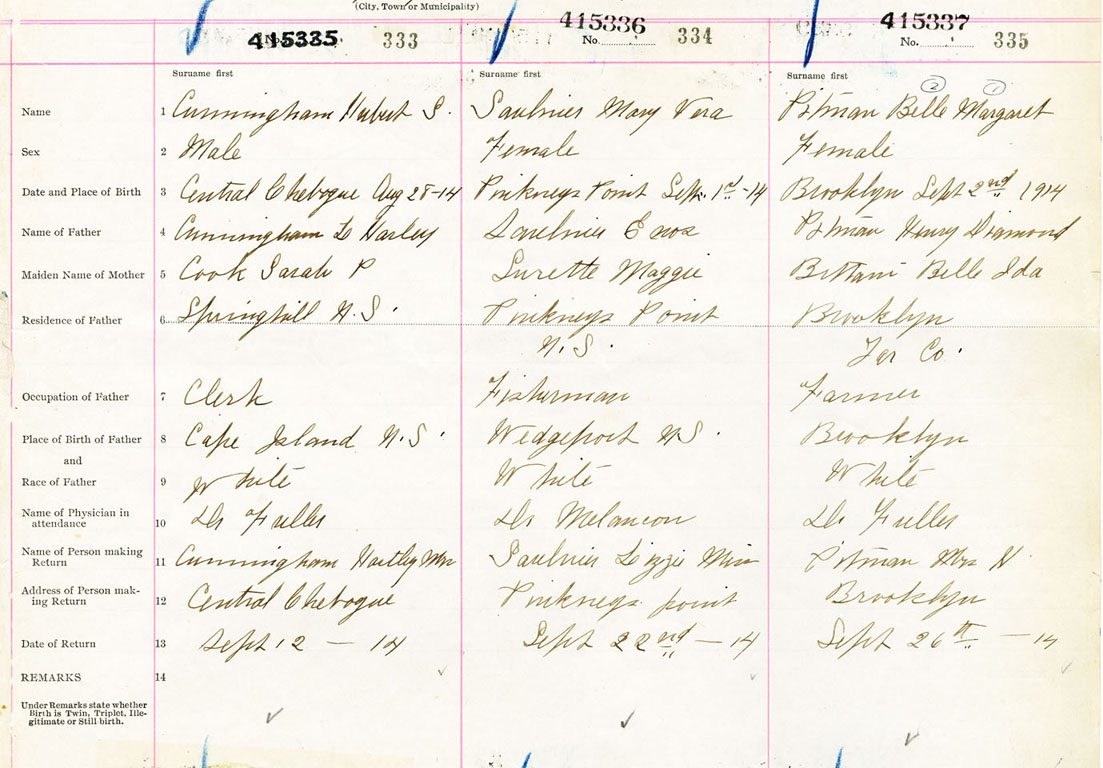 (City, Town or Municipality)
415335 333 415336 No. 334 415337 No. 335
Surname first Surname first Surname first
② ①
Name 1 Cunningham Hubert S. Saulnier Mary Vera Pitman Belle Margaret
Sex 2 Male Female Female
Date and Place of Birth 3 Central Chebogue Aug 28-14 Pinkneys Point Sept. 1st-14 Brooklyn Sept 2nd 1914
Name of Father 4 Cunningham L Harley Saulnier Enos Pitman Henry Diamond
Maiden Name of Mother 5 Cook Sarah P Surette Maggie Brittani Belle Ida
Residence of Father 6 Springhill N.S. Pinkneys Point Brooklyn
N.S. Yar Co.
Occupation of Father 7 Clerk Fisherman Farmer
Place of Birth of Father 8 Cape Island N.S. Wedgeport N.S. Brooklyn
and
Race of Father 9 White White White
Name of Physician in
attendance 10 Dr Fuller Dr Melancon Dr Fuller
Name of Person making
Return 11 Cunningham Hartley Mrs Saulnier Lizzie Miss Pitman Mrs H
Address of Person mak-
ing Return 12 Central Chebogue Pinkneys point Brooklyn
Date of Return 13 Sept 12 - 14 Sept 22nd - 14 Sept 26th - 14
REMARKS 14
Under Remarks state whether
Birth is Twin, Triplet, Ille-
gitimate or Still birth.